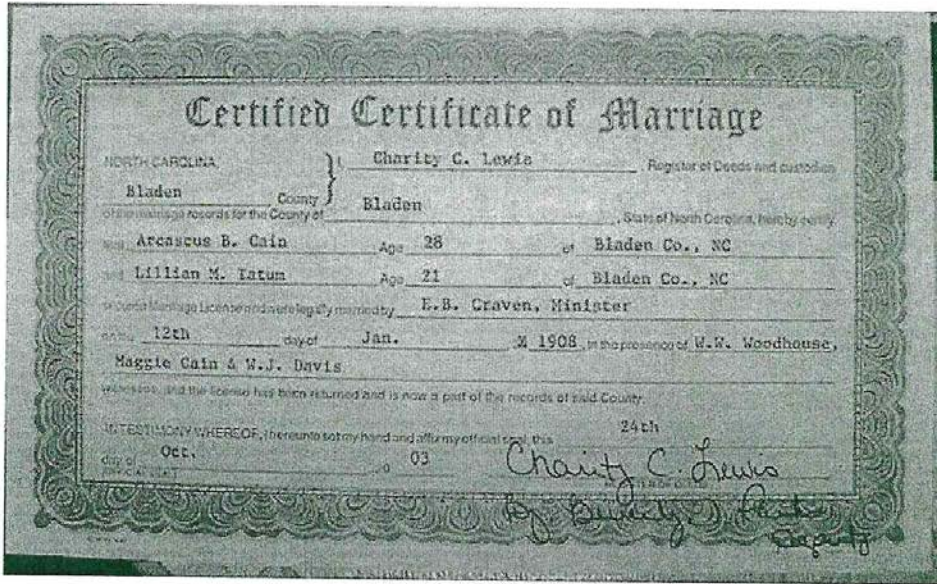 Certified Certificate of Marriage
NORTH CAROLINA, } I, Charity C. Lewis, Register of Deeds and custodian
Bladen County
of the marriage records for the County of Bladen, State of North Carolina, hereby certify
that Arcascus B. Cain Age 28 of Bladen Co., NC
and Lillian M. Tatum Age 21 of Bladen Co., NC
Marriage License and were legally married by E.B. Craven, Minister
on the 12th day of Jan. X 1908, in the presence of W.W. Woodhouse,
Maggie Cain & W.J. Davis
witnesses, and the license has been returned and is now a part of the records of said County.
IN TESTIMONY WHEREOF, I hereunto set my hand and affix my official seal, this 24th
day of Oct. 03
Charity C. Lewis
By Deputy